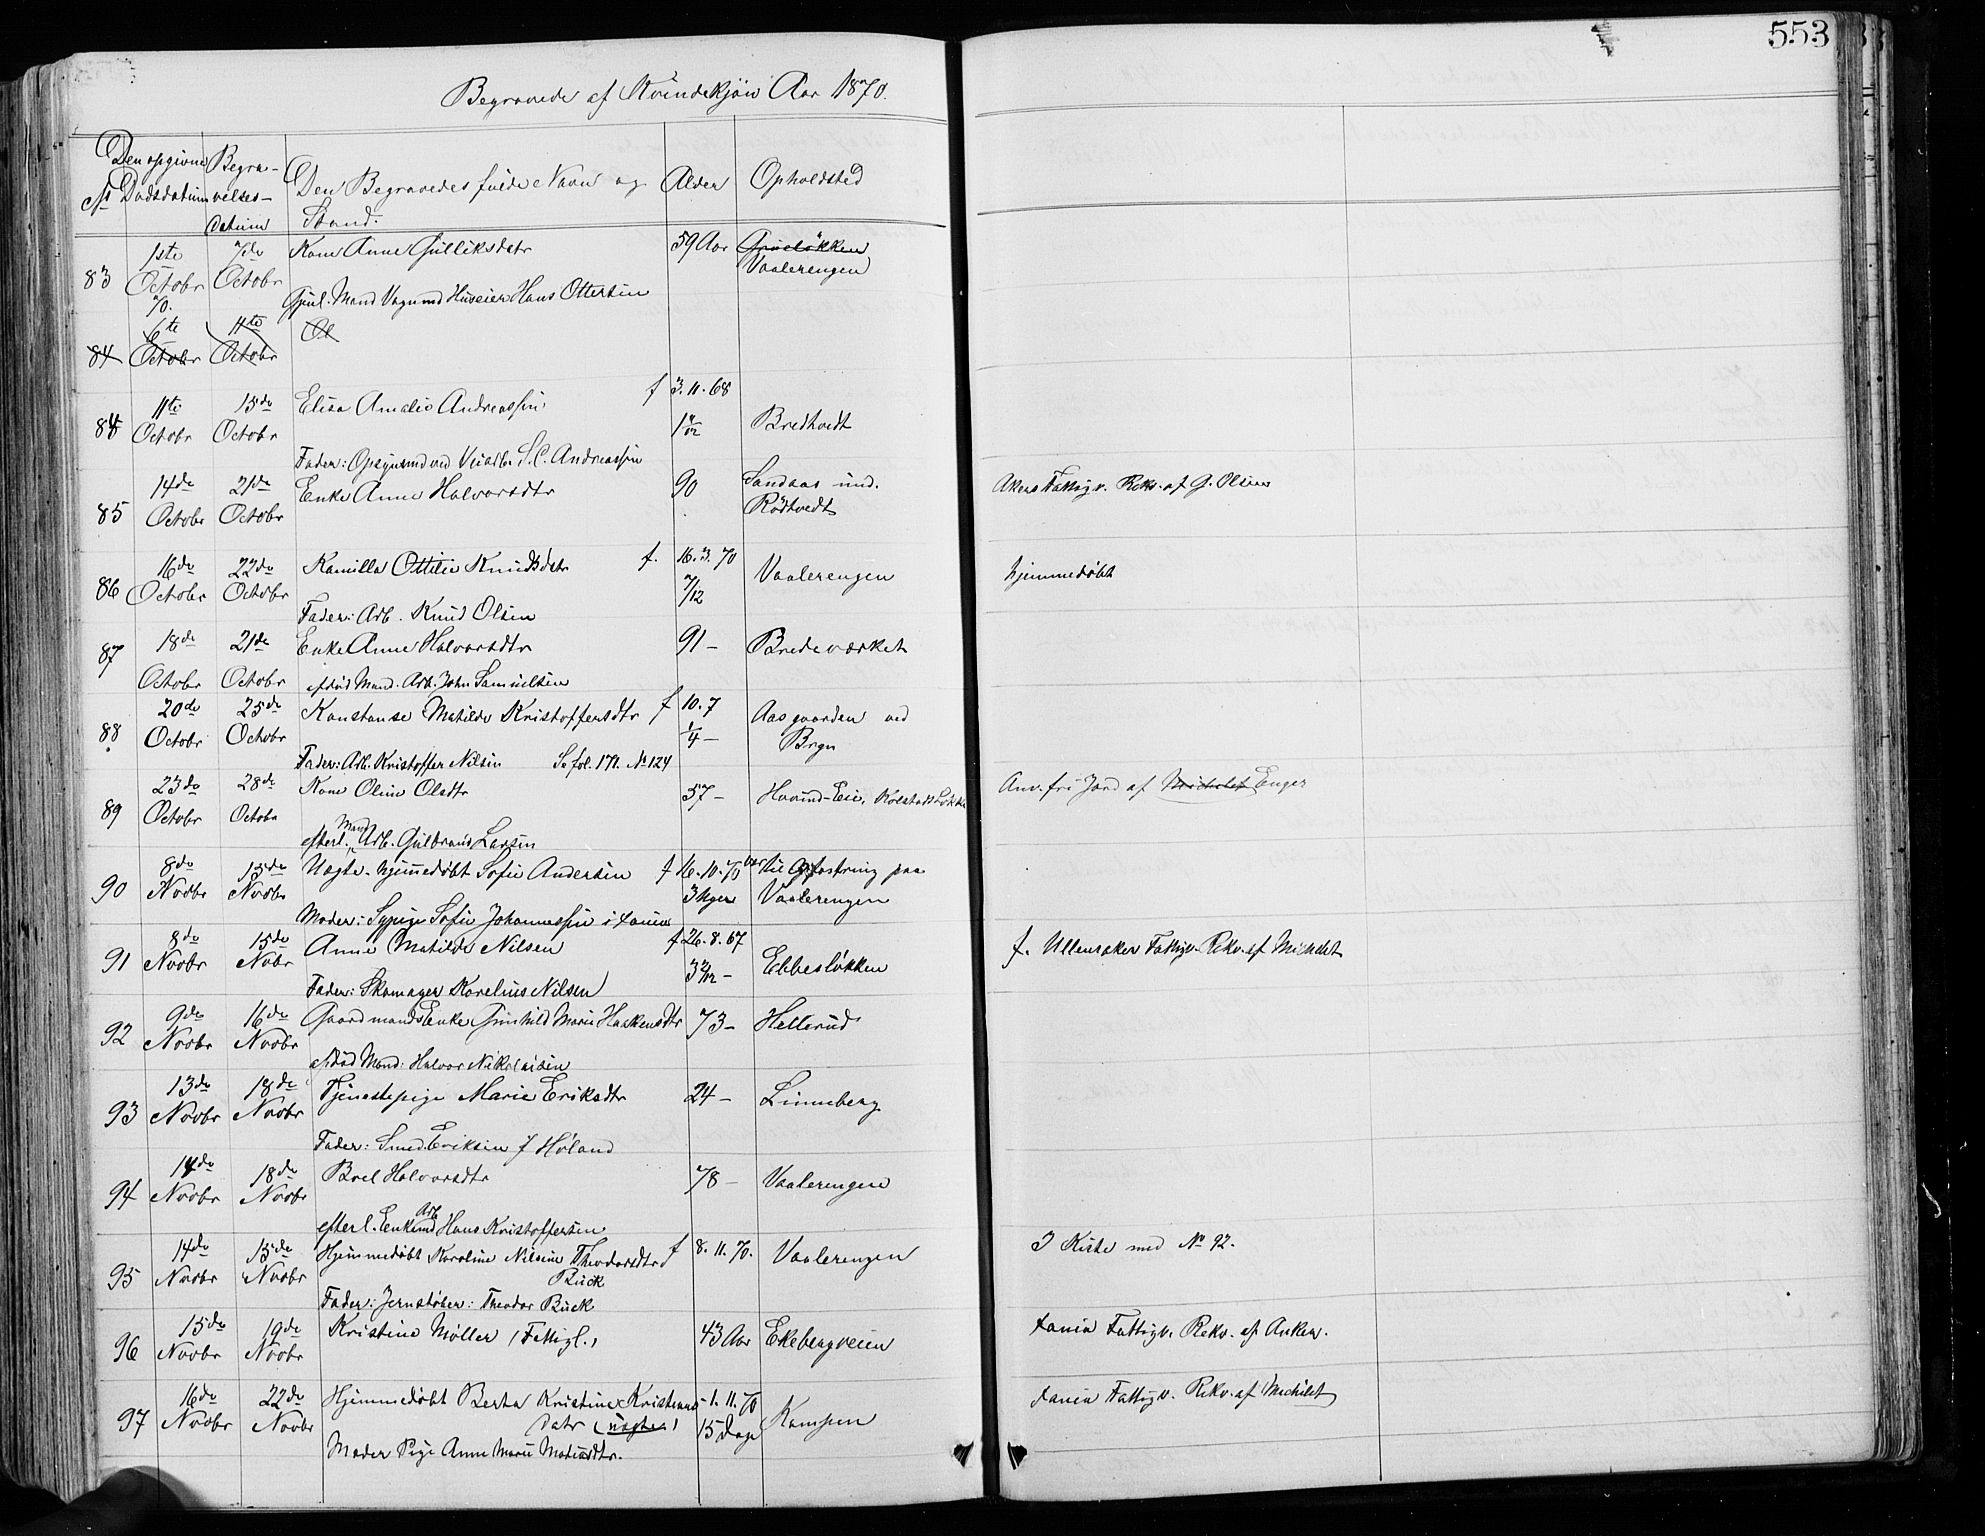 553
Begravede af Kvindekjøn Aar 1870.
No Den opgivne Dødsdatum Begravelses-datum Den Begravedes fulde Navn og Stand. Alder Opholdsted
83 1ste Octobr 70. 7de Octobr Kone Anne Gulliksdatr 59 Aar Grueløkken Vaalerengen
Gjenl. Mand Vognmd Huseier Hans Ottersen
84 6te Octobr 11te Octobr Ol
84 11te Octobr 15de Octobr Elisa Amalie Andreassen f 3.11.68 Bredtvedt
Fader: Opsynsmd ved Veiarb. S. C. Andreassen
85 14de Octobr 21de Octobr Enke Anne Halvorsdtr 90 Sandaas und. Rødtvedt Akers Fattigv. Rekv. af G. Olsen
86 16de Octobr 22de Octobr Kamilla Ottilie Knudsdatr f. 16.3.70 7/12 Vaalerengen hjemmedøbt
Fader: Arb. Knud Olsen
87 18de Octobr 21de Octobr Enke Anne Halvorsdtr 91 – Bredeværket
afdød Mand. Arb. John Samuelsen
88 20de Octobr 25de Octobr Konstanse Matilde Kristoffersdtr f 10.7 1/4 – Aasgaarden ved Bryn
Fader: Arb. Kristoffer Nilsen Se fol. 179. No 124
89 23de Octobr 28de Octobr Kone Oline Olsdtr 57 – Hovind-Eie, Kolstad Løkke Anv. fri Jord af Michelet Enger
efterl. Mand Arb. Gulbrand Larsen
90 8de Novbr 15de Novbr Uægte. hjemmedøbt Sofie Andersen f 16.10.70 3 Uger var til Opfostring paa Vaalerengen
Moder: Sypige Sofie Johannessen i Xania
91 8de Novbr 15de Nobr Anne Matilde Nilsen f 26.8.67 3 2/12 – Ebbesløkken f. Ullensaker Fattigv. Rekv. af Michelet
Fader: Skomager Karelius Nilsen
92 9de Novbr 16de Novbr Gaardmands Enke Gunhild Marie Haakensdtr 73 – Hellerud
afdød Mand: Halvor Nikolaisen
93 13de Novbr 18de Novbr Tjenestepige Marie Eriksdtr 24 – Linneberg
Fader: Smed. Eriksen f Høland
94 14de Novbr 18de Novbr Berel Halvorsdtr 78 – Vaalerengen
efterl. Enkemd Arb Hans Kristoffersen
95 14de Novbr 15de Novbr Hjemmedøbt Karoline Nilsine Theodorsdtr Buck f 8.11.70. Vaalerengen I Kiste med No 92.
Fader: Jernstøber: Theodor Buck
96 15de Novbr 19de Novbr Kristine Møller (Fattigl.) 43 Aar Ekebergveien Xania Fattigv. Rekv. af Anker.
97 16de Novbr 22de Novbr Hjemmedøbt Berta Kristine Kristians datr (uægte) – 1.11.70 15 Dage Kampen Xania Fattigv. Rekv. af Michelet
Moder Pige Anne Marie Madisdtr.